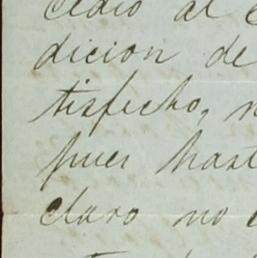 cedió al
dicion de
tisfecho, n
pues hast
claro no